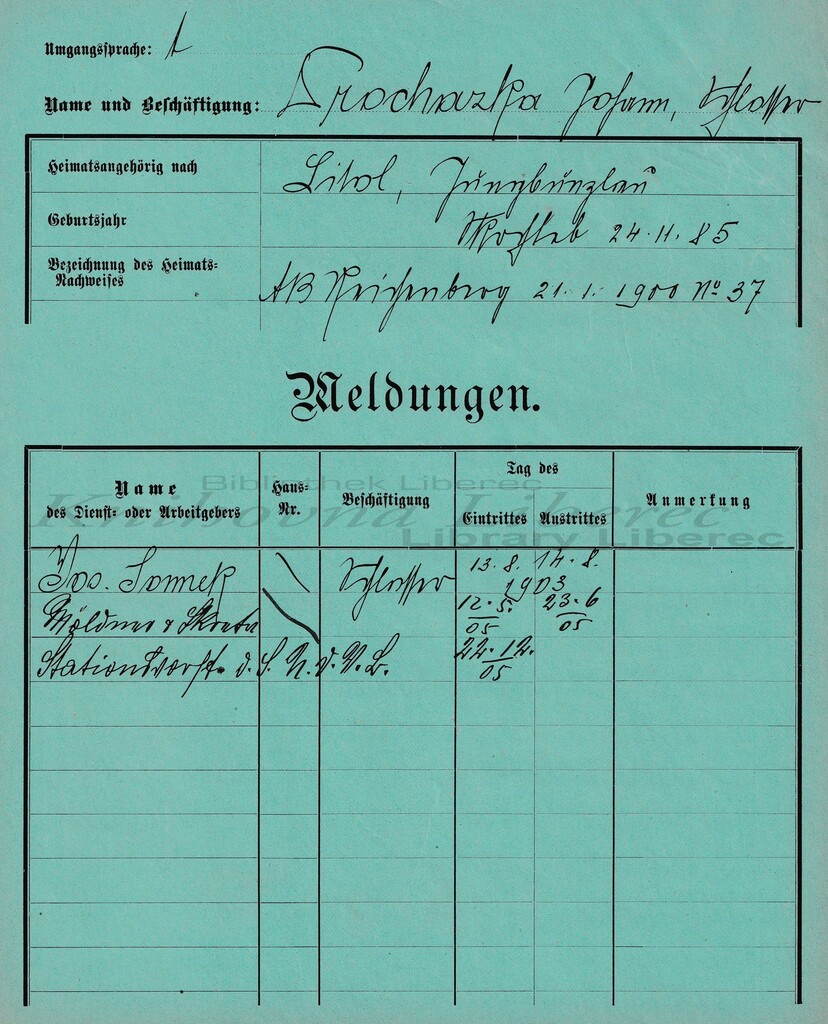 Umgangssprache: t
Name und Beschäftigung: Prochazka Johann, Schlosser
Heimatsangehörig nach Litol, Jungbunzlau
Geburtsjahr 24.11.85
Bezeichnung des Heimats-
Nachweises AB Reichenberg 21.1.1900 No 37
Meldungen.
Name
des Dienst- oder Arbeitgebers
Haus-
Nr.
Beschäftigung
Tag des
Eintrittes Austrittes
Anmerkung
Bibliothek Liberec
Knihovna Liberec
Library Liberec
Jos. Sonnek Schlosser 13.8. 14.8.
1903
Wöldner & 12.5. 23.6
05 05
Stationsvorst. d. S. N. d. V. B. 22.12.
05